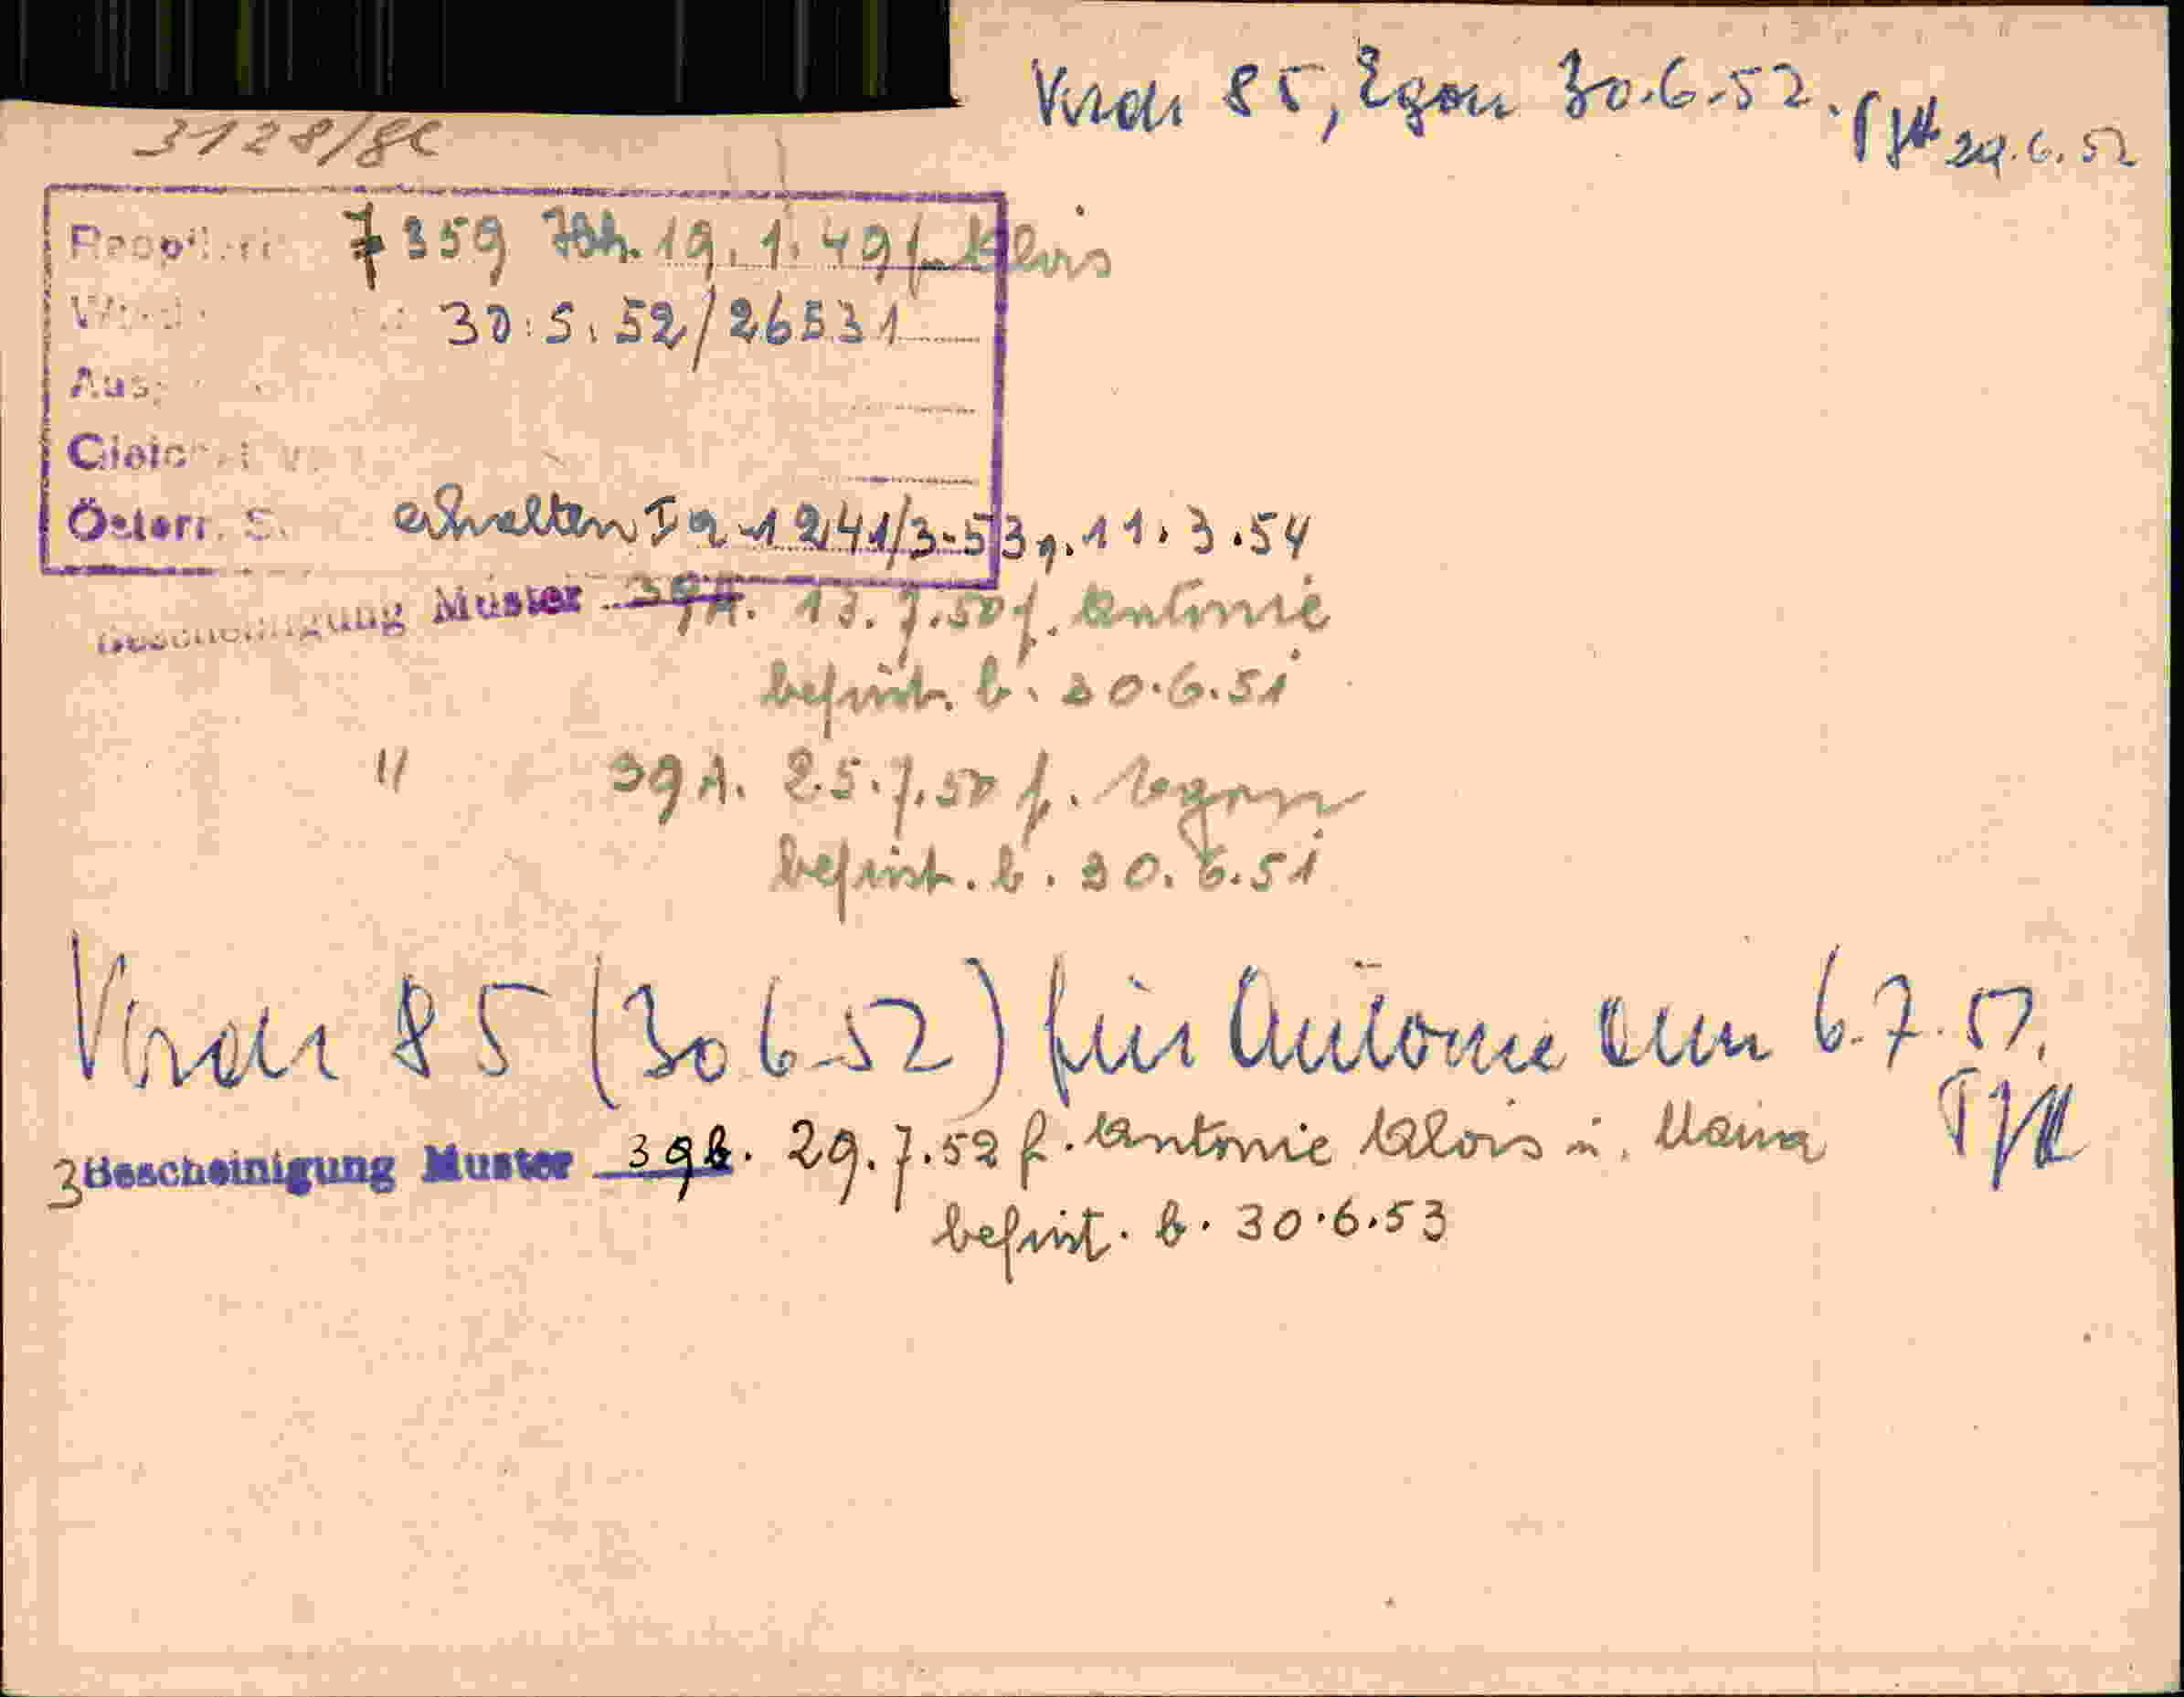 Vordr 85, Egon 30.6.52. 29.6.52
3128/
7359 19.1.49 f. Alois
30.5.52/26531
Aus
Österr. S. erhalten Ia-1241/3-53 v. 11.3.54
Bescheinigung Muster 39A. 13.7.50 f. Antonie
befrist. b. 30.6.51
" 39A. 25.7.50 f. Egon
befrist. b. 30.6.51
Vordr 85 (30 6.52) für Antonie am 6.7.51.
3 Bescheinigung Muster 39A. 29.7.52 f. Antonie Alois u. Maria
befrist. b. 30.6.53